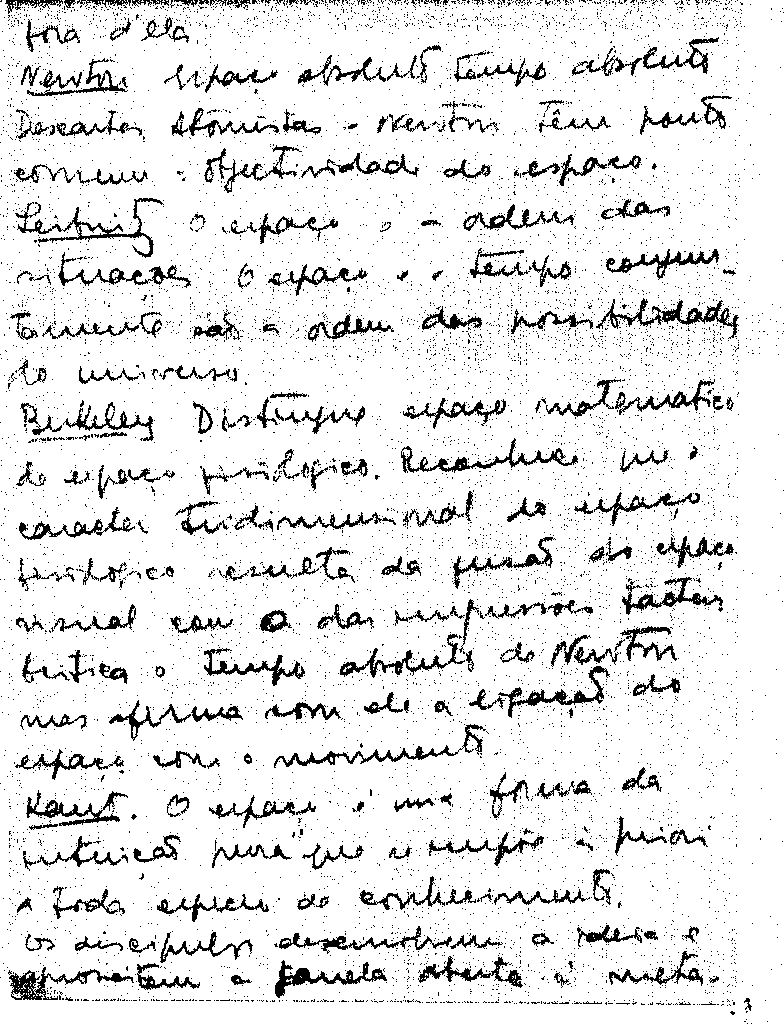 fora d'ella.
Newton espaço absoluto tempo absoluto
Descartes, Atomistas e Newton têm ponto
comum a objectividade do espaço.
Leibnitz O espaço é a ordem das
situações O espaço e o tempo conjun-
tamente são a ordem das possibilidades
do universo.
Berkeley Distingue espaço matematico
do espaço fisiologico. Reconhece que o
caracter tridimensional do espaço
fisiologico resulta da fusão do espaço
visual com o das impressões tacteis
Critica o tempo absoluto de Newton
mas afirma com ele a ligação do
espaço com o movimento
Kant. O espaço é uma forma da
intuição pura que se impõe à priori
a toda especie de conhecimento.
Os discipulos desenvolvem a ideia e
aproveitem a janela aberta á meta-